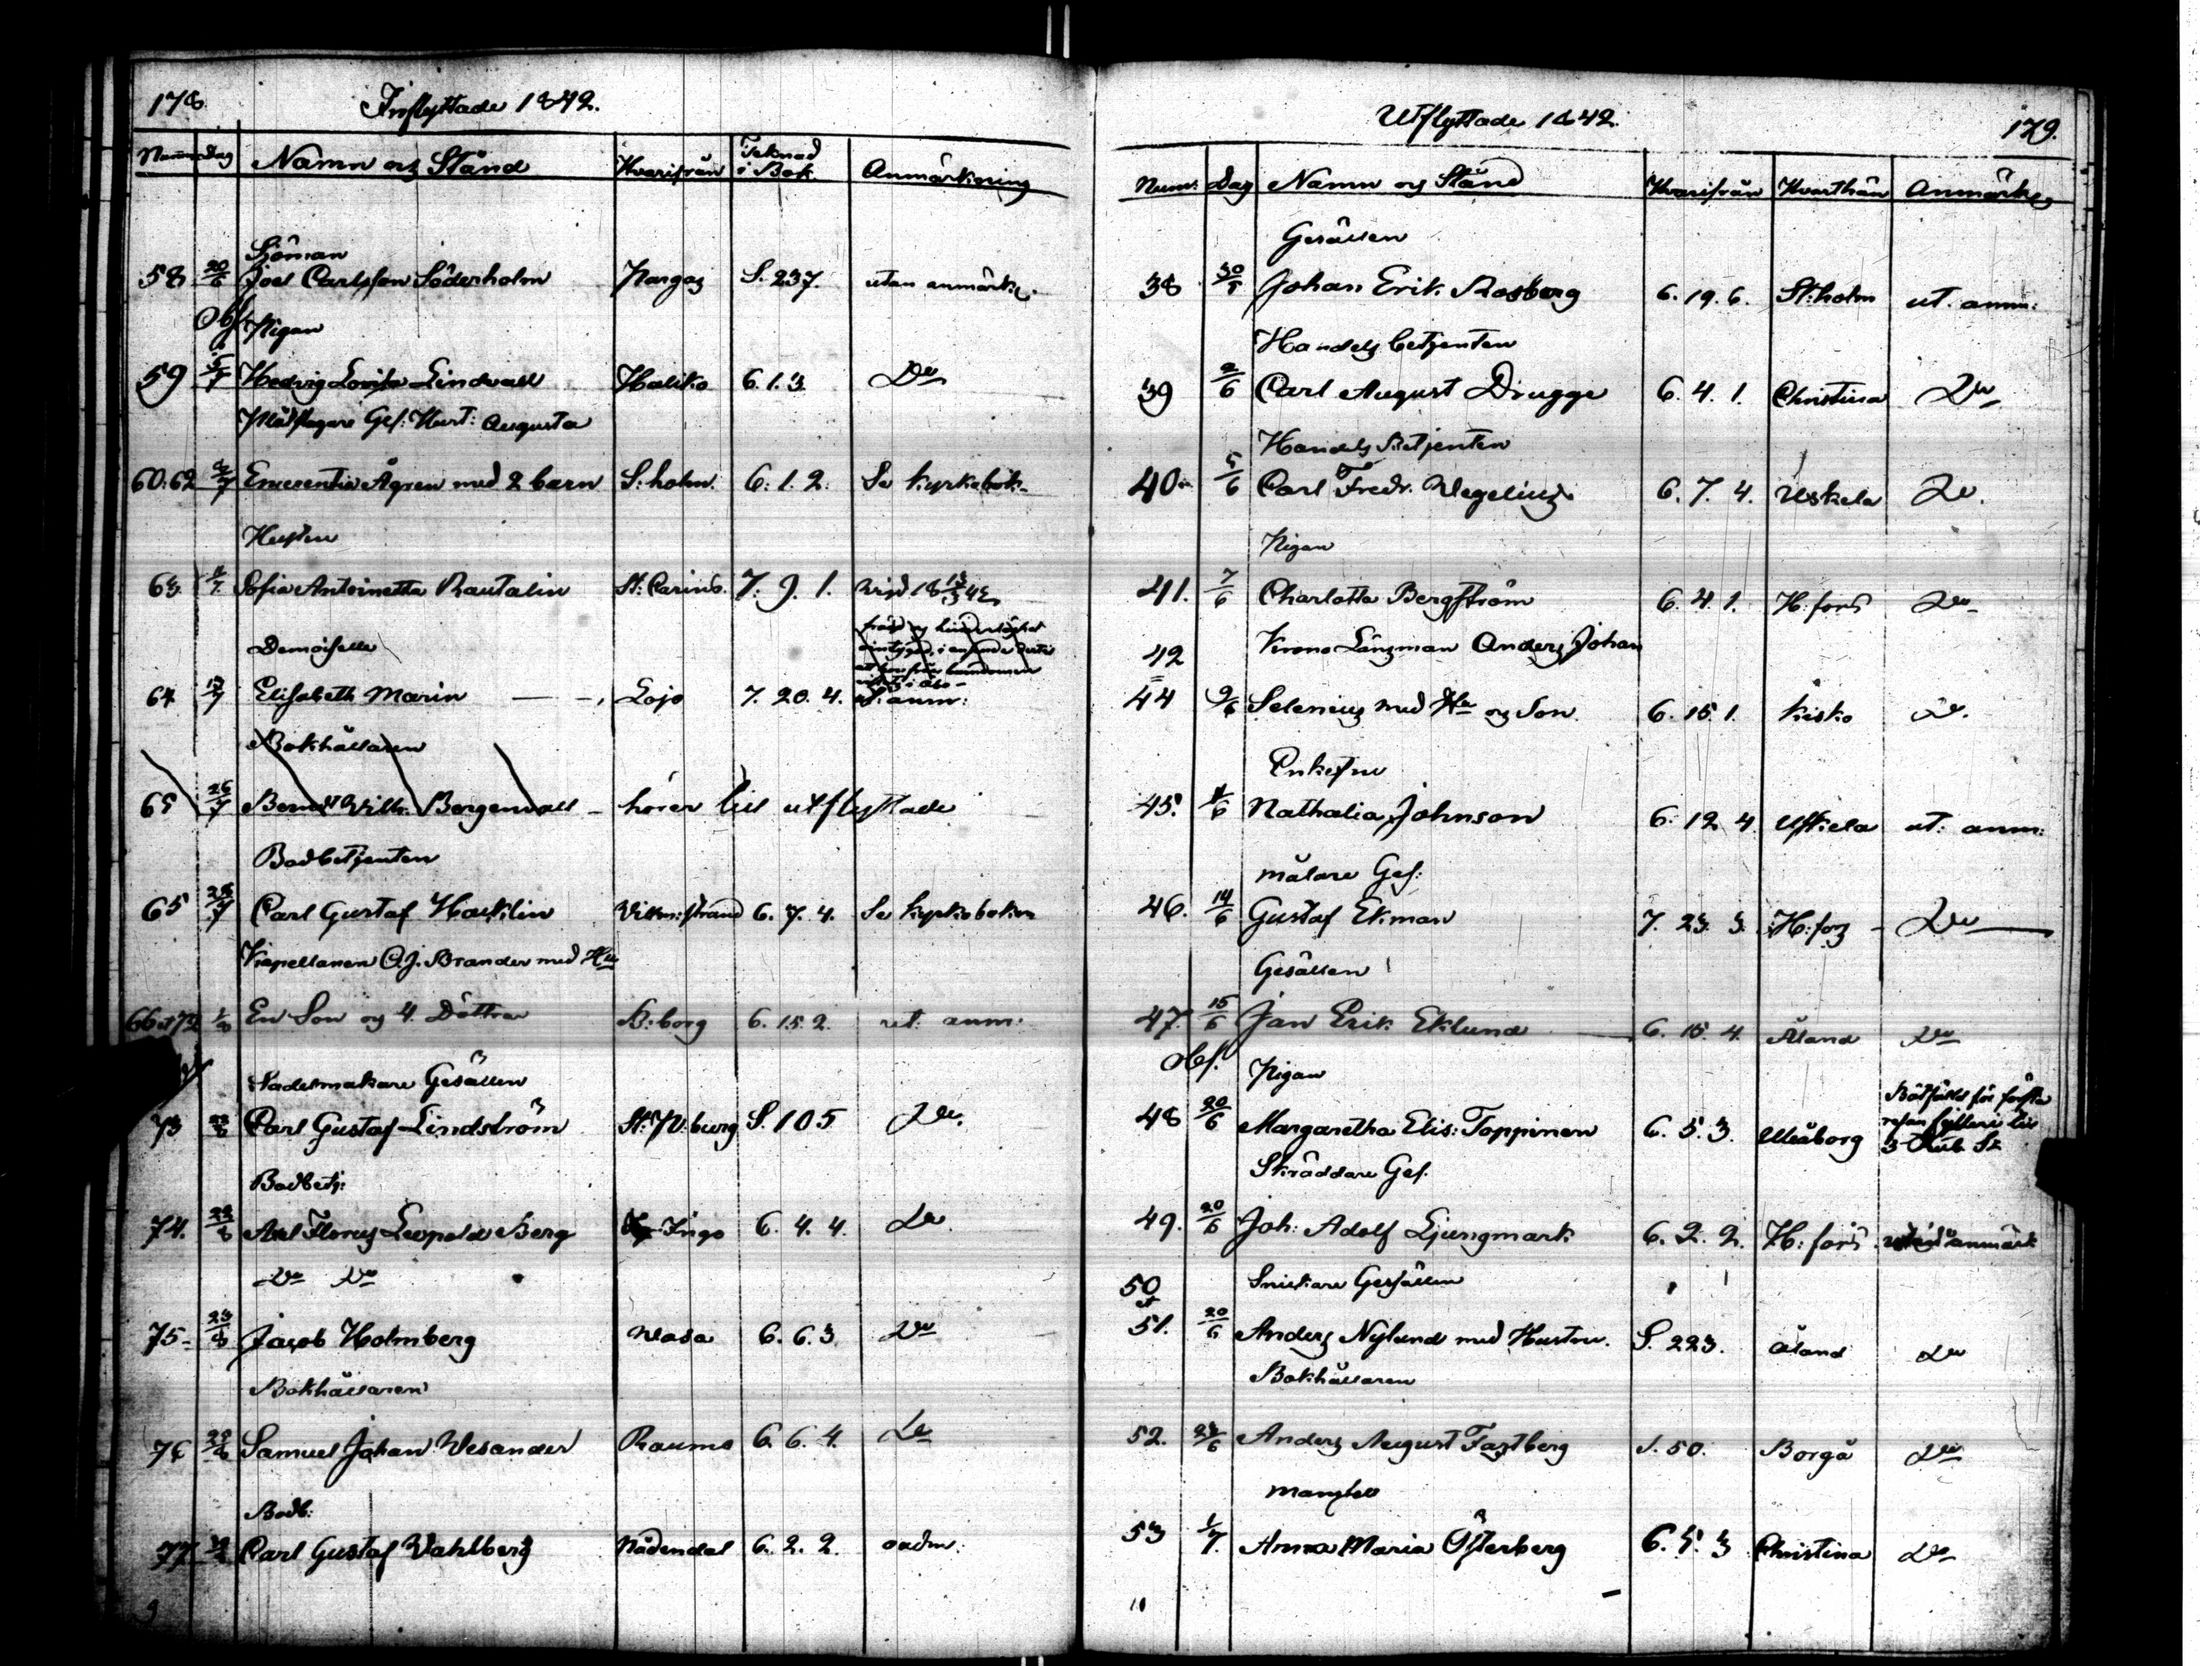 178.
Inflyttade 1842.
Dag Namn och Stånd Hvarifrån Teknad i Bok Anmärkning
Sjöman
58 20/6 Joel Carlsson Söderholm Pargas S. 237. utan anmärkn.
Obs Pigan
59 5/7 Hedvig Lovisa Lindvall Haliko 6.1.3 Do
Ges: Hust: Augusta
60:62 Emerentia Ågren med 2 barn S:holm. 6.1.2. Se kyrkobok.
63 Sofia Antoinetta Rautalin St: Carins. 7.9.1.
Demoiselle
64 Elisabeth Marin Lojo 7.20.4. ut. anm:
Bokhållaren
65 26/7 Bernd Wilh. Bergenvall - hörer till utflyttade
Bodbetjenten
65 28/7 Carl Gustaf Hacklin Vilkm:strand 6.7.4. Se kyrkoboken
Kapellanen C.J. Brander med Hu
66 a 72 1/8 En Son och 4. Döttrar B:borg 6.15.2. ut. anm:
Sadelmakare Gesällen
73 Carl Gustaf Lindström St: P:burg S. 105 Do.
Bodbetj:
74. Axel Florus Leopold Berg Ingo 6.4.4. Do.
Do Do
75- 23/8 Jacob Holmberg Wasa 6.6.3 Do
Bokhållaren
76 Samuel Johan Vesander Raumo 6.6.4. Do
Bodb:
77 Carl Gustaf Wahlberg Nådendal 6.2.2.
Utflyttade 1842.
179.
Num: Dag Namn och Stånd Hvarifrån Hvarthän Anmärkn
Gesällen
38 30/5 Johan Erik Rosberg 6.19.6. St:holm ut. anm:
Handels betjenten
39 2/6 Carl August Drugge 6.4.1. Christina Do
Handels Betjenten
40 5/6 Carl Fredr. Wegelius 6.7.4. Uskela Do.
Pigan
41. 7/6 Charlotta Bergström 6.4.1. H:fors Do
42 Krono Länsman Anders Johan
44 9/6 Selenius med Hu och Son 6.15.1. Kisko Do.
Enkefru
45. 11/6 Nathalia Johnson 6.12.4 Uskela ut: anm:
målare Ges:
46. 14/6 Gustaf Ekman 7.23.3. H:fors - Do
Gesällen
47. 15/6 Jan Erik Eklund 6.15.4. Åland Do
Obs. Pigan
48 20/6 Margaretha Elis: Toppinen 6.5.3. Uleåborg Bötfälld för första resan till 3 Rub S
Skräddare Ges.
49. 20/6 Joh: Adolf Ljungmark 6.2.2. H:fors anmärk
50 Snickare Gesällen
et
51. 20/6 Anders Nylund med Hustru. S. 223. Åland Do
Bokhållaren
52. Anders August Fastberg S. 50. Borgå Do
Mamsell
53 1/7 Anna Maria Österberg 6.5.3 Christina Do